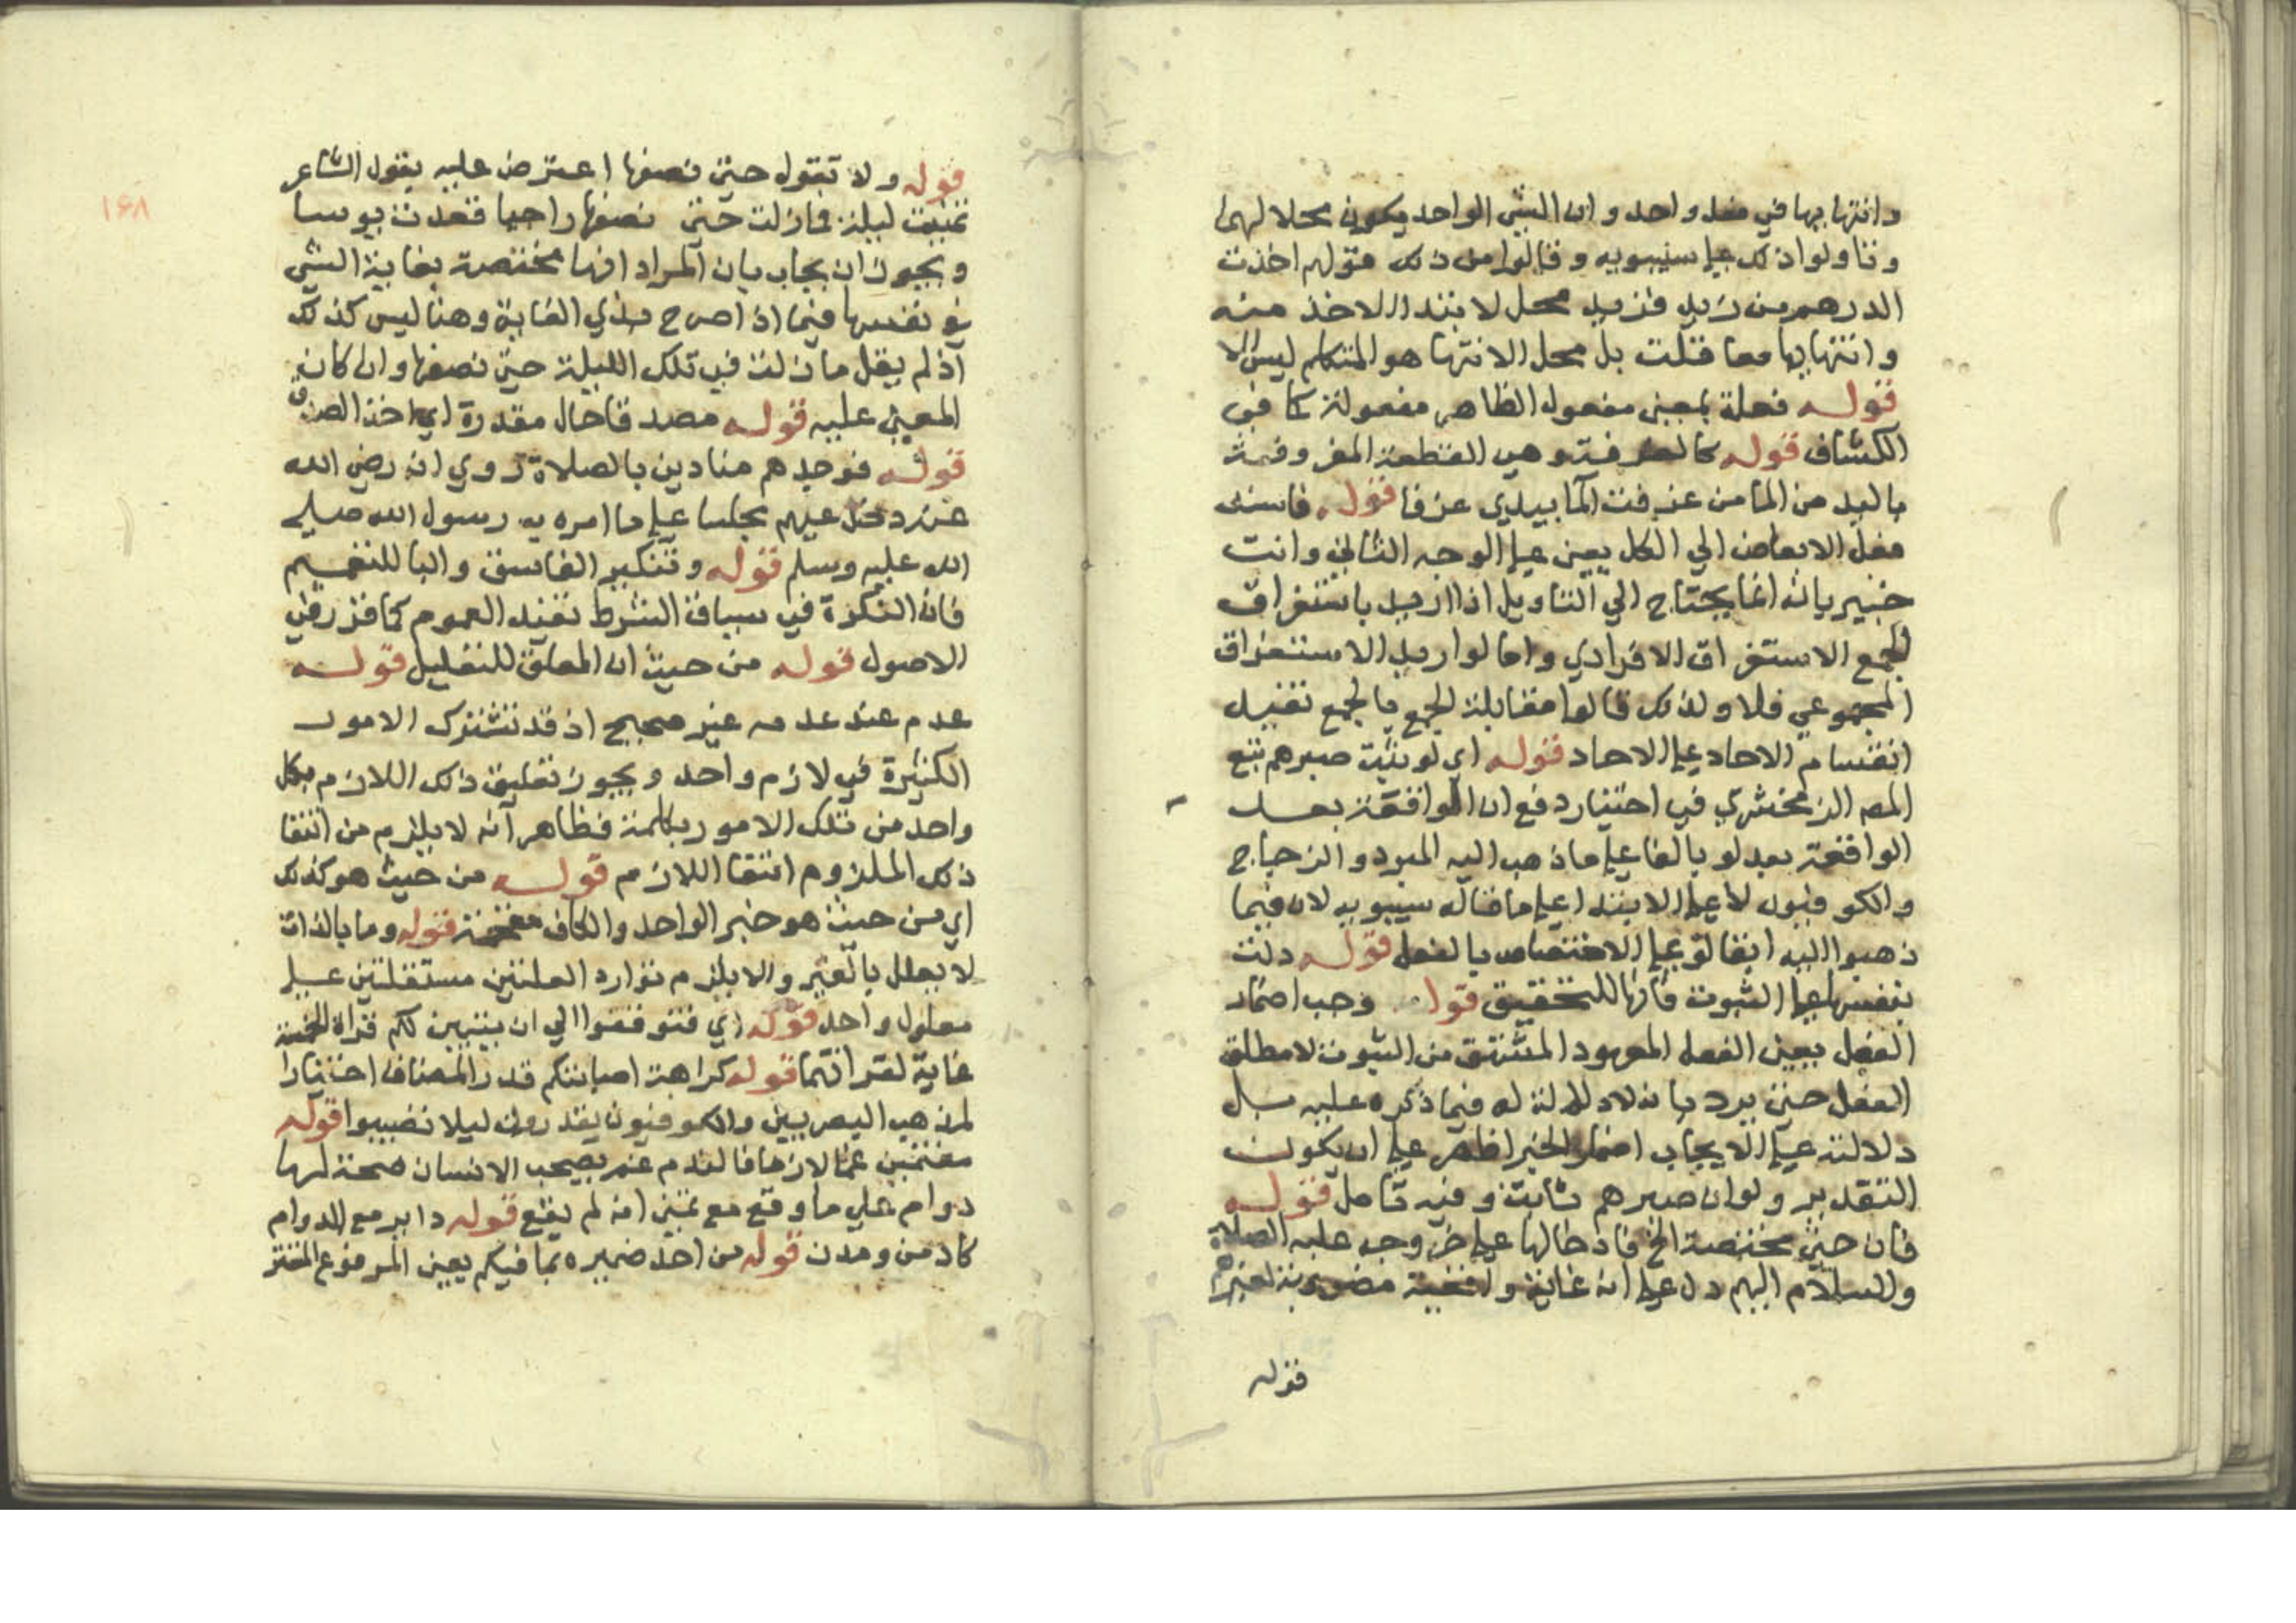 وانتهابها في فعل واحد وان الشي الواحد يكون محلا لهما
وتاولوا ذلك علي سيبويه وقالوا من ذلك قولهم اخذت
الدرهم من زيد فزيد محل لابتدا الاخذ منه
وانتهابها معا قلت بل محل الانتها هو المتكلم ليس الا
قوله فعلة بمعني مفعول الظاهر مفعولة كما في
الكشاف قوله كالغرفة وهي القطعة المغروفة
باليد من الما من غرفت الما بيدي غرفا قوله فاسند
فعل الابعاض الي الكل يعني علي الوجه الثاني وانت
خبير بانه انما يحتاج الي التاويل اذا اريد باستغراق
الجمع الاستغراق الافرادي واما لو اريد الاستغراق
المجموعي فلا ولذلك قالوا مقابلة الجمع بالجمع تفيد
انقسام الاحاد علي الاحاد قوله اي لو ثبت صبرهم تبع
المص الزمخشري في اختيار رفع ان الواقعة بعد
الواقعة بعد لو بالفاعل علي ما ذهب اليه المبرد والزجاج
والكوفيون لا علي الابتدا علي ما قاله سيبويه لان فيما
ذهبوا اليه ابقا لو علي الاختصاص بالفعل قوله دلت
بنفسها علي الثبوت فانها للتحقيق قوله وجب اضمار
الفعل يعني الفعل المعهود المشتق من الثبوت لا مطلق
الفعل حتي يرد بانه لا دلالة له فيما ذكره عليه بل
دلالته علي الايجاب اضمار الخبر اظهر علي ان يكون
التقدير ولو ان صبرهم ثابت وفيه تامل قوله
فان حتي مختصة الخ فادخالها علي خروجه عليه الصلاة
والسلام اليهم دل علي انه غاية واقعية مضروبة لصبرهم
قوله
١٦٨
قوله ولا تقول حتي نصفها اعترض عليه بقول الشاعر
عينت ليلة فمازلت حتي نصفها راجيا فعدت يوسا
ويجوز ان يجاب بان المراد انها مختصة بغاية الشي
في نفسها فيما اذا صرح بذي الغاية وهنا ليس كذلك
اذ لم يقل مازلت في تلك الليلة حتي نصفها وان كان
المعني عليه قوله مصدقا حال مقدرة اي اخذ الصدق
قوله فوجدهم منادين بالصلاة روي انه رضي الله
عنه دخل عليهم مجلسا علي ما امره به رسول الله صلي
الله عليه وسلم قوله وتنكير الفاسق والنبا للتعميم
فان النكرة في سياق الشرط تفيد العموم كما قرر في
الاصول قوله من حيث ان المعلق للتعليل قوله
عدم عند عدمه غير صحيح اذ قد تشترك الامور
الكثيرة في لازم واحد ويجوز تعليق ذلك اللازم بكل
واحد من تلك الامور بكلمة فظاهر انه لا يلزم من انتفا
ذلك الملزوم انتفا اللازم قوله من حيث هو كذلك
اي من حيث هو خبر الواحد والكاف مقحمة قوله وما بالذات
لا يعلل بالغير والا يلزم توارد العلتين مستقلتين علي
معلول واحد قوله اي فتوقفوا الي ان يتبين لكم قراة الخمسة
غاية لقراتهما قوله كراهة اصابتكم قدر المضاف اختيارا
لمذهب البصريين والكوفيون يقدرون ليلا تصيبوا قوله
مغتمين غما لازما فالندم غم يصحب الانسان صحبة لها
دوام علي ما وقع مع تمني انه لم يقع قوله داير مع الدوام
كادمن ومدن قوله من احد ضميره بما فيكم يعني المرفوع المستتر